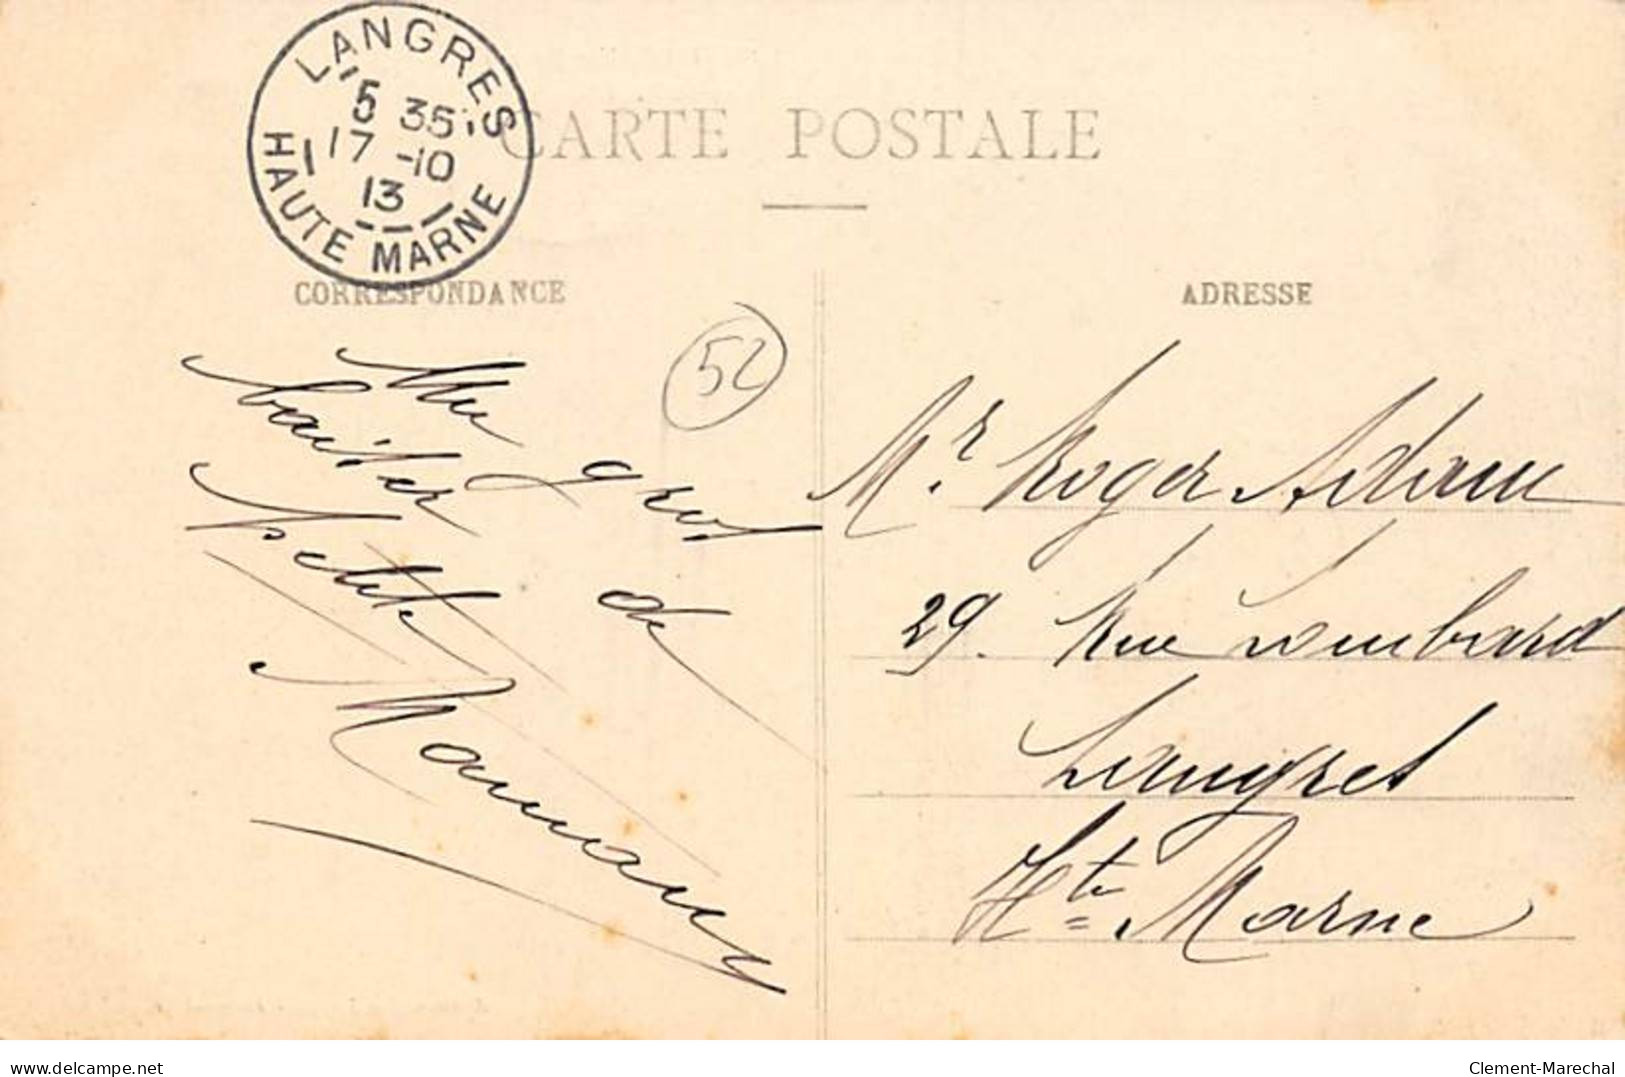 LANGRES
5 35
17 -10
13
HAUTE MARNE
CARTE POSTALE
CORRESPONDANCE
ADRESSE
52
Un gros
baiser de
petite
Maman
Mr Roger Adam
29. Rue Lombard
Langres
Hte Marne
delcampe.net
Clement-Marechal